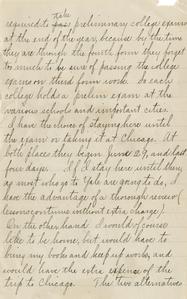 take
required to preliminary college exams
at the end of the year, because by the time
they are through the fourth form they forget
too much to be sure of passing the college
exams on third form work. So each
college holds a prelim exam at the
various schools and important cities.
I have the choice of staying here until
the exam or taking it at Chicago. At
both place they begin June 29, and last
four days. If I stay here until then,
as most who go to Yale are going to do, I
have the advantage of a thorough review of
lessons continue without extra charge).
On the other hand I would of course
like to be home, but would have to
bring my books and keep up works, and
would have the extra expense of the
trip to Chicago. The two alternative